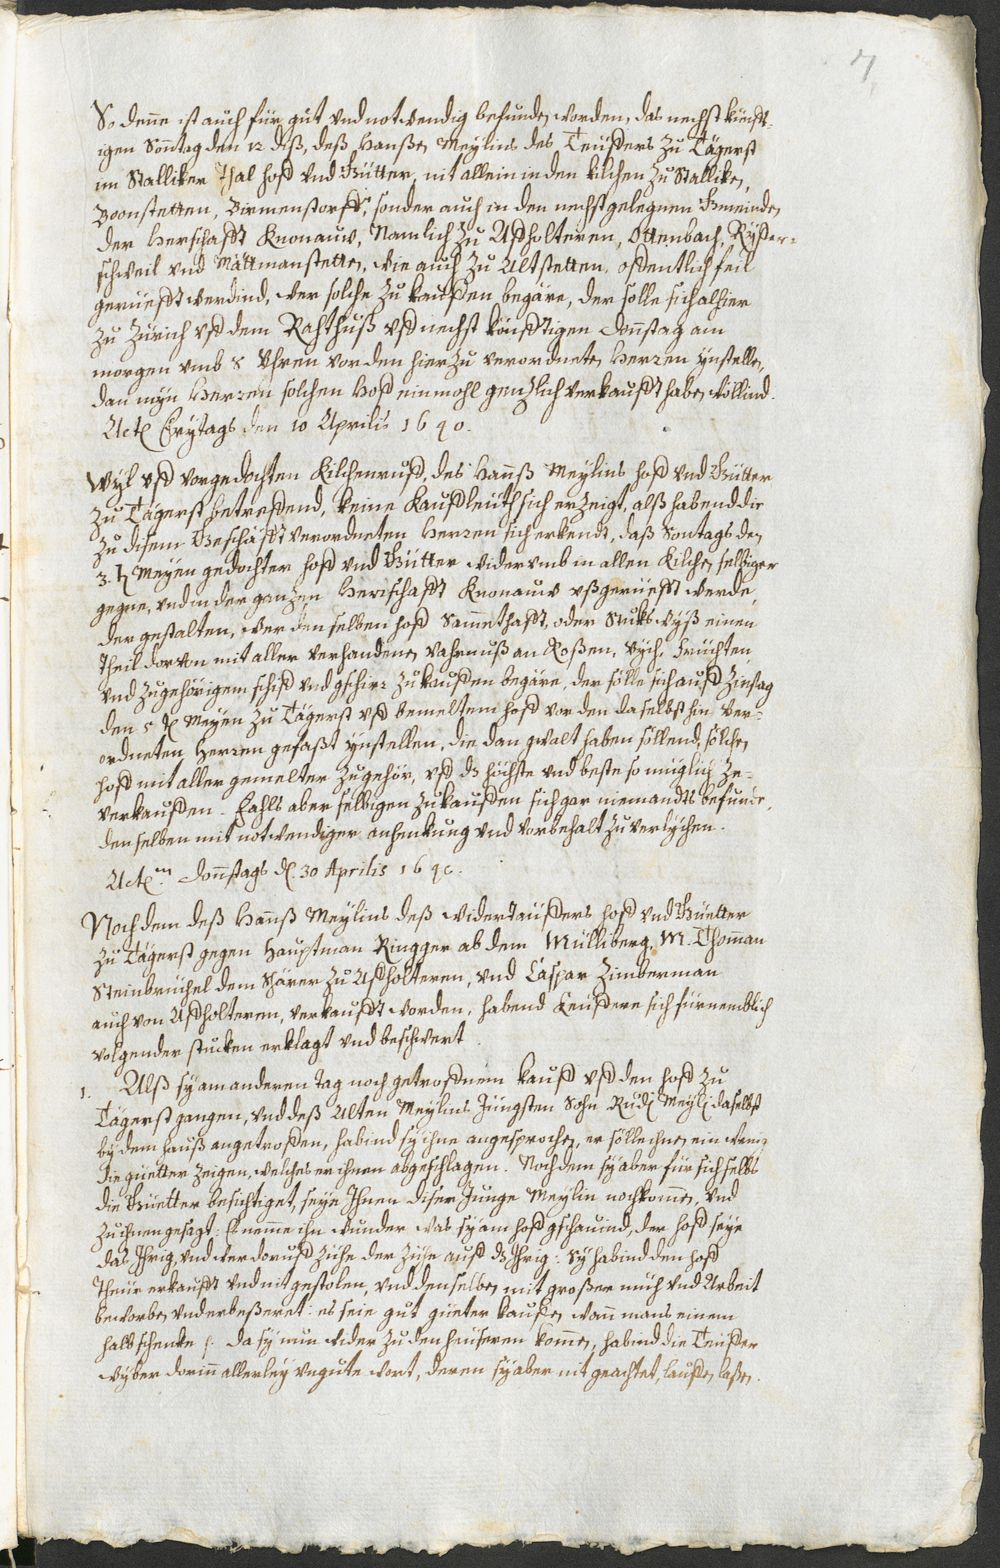 7
So denne ist auch für gut vnd notwendig befunden worden, das nechst künfft-
igen Sontag den 12 diß, deß Hanßen Meylins des Teüffers zu Tägerst
im Stalliker Thal hoff vnd Gütter, nit allein in den kilchen zu Stalliken,
Boonstetten, Birmenstorff, sonder auch in den nechst gelegnen Gmeinden
der Herschafft Knonauw, Namlich zu Affholteren, Ottenbach, Ryffer-
schweil vnd Mättmanstetten, wie auch zu Altstetten, offentlich feil
gerüefft werdind, wer solche zu kauffen begäre, der solle sich alhier
zu Zürich vff dem Rahthuß vff nechst künfftigen Donstag am
morgen vmb 8 Vhren vor den hierzu verordneten Herren ynstellen,
dan myn Herren solchen Hoff einmohl genzlich verkaufft haben wöllind.
Actum Frytags den 10 Aprilis 1640.
Wyl vff vorgedochten Kilchenruff, des Hanß Meylins hoff vnd Gütter
zu Tägerst betreffend, keine Kauffleüth sich erzeigt, alß habend die
zu disem Geschäfft verordneten Herren sich erkendt, daß Sontags den
3. Meyen gedochter hoff vnd Gütter widervmb in allen Kilchen selbiger
gegne, vnd in der ganzen Herrschafft Knonauw vßgerüefft werde,
der gestalten, wer denselben hoff Sammethafft, oder Stuckswyß einen
Theil dorvon mit aller verhandenen Vahrnuß an Roßen, Vych, Früchten
vnd zugehörigem schiff vnd gschirr zu kauffen begäre, der sölle sich auff Zinstag
den 5 Meyen zu Tägerst vff bemeltem hoff vor den daselbst hin ver-
ordneten Herren gefaßt ynstellen, die dan gwalt haben söllend, solchen
hoff mit aller gemelter zugehör, vff ds höchste vnd beste so müglich ze-
verkauffen. Fahls aber selbigen zu kauffen sich gar niemandts befunde,
denselben mit notwendiger anhenkung vnd vorbehalt zu verlychen.
Actum Donstags den 30 Aprilis 1640.
Noch dem deß Hanß Meylins deß widertäuffers hoff vnd Güetter
zu Tägerst gegen Hauptman Ringger ab dem Mülliberg, M. Thoman
Steinbrüchel dem Schärer zu Affholteren, vnd Caspar Zimberman
auch von Affholteren, verkaufft worden, habend Keuffere sich fürnemblich
volgender stucken erklagt vnd beschwert.
1. Alß sy am anderen tag noch getroffnem kauff vff den hoff zu
Tägerst gangen, vnd deß Alten Meylins Jüngsten Sohn Rudi Meyli daselbst
by dem hauß angetroffen, habind sy ihne angesprochen, er sölle ihnen ein wenig
die güetter zeigen, welches er ihnen abgeschlagen. Noch dem sy aber für sich selbs
die Güetter besichtiget, seye Ihnen diser Junge Meylin nochkommen, vnd
zu ihnen gesagt: Es nemme ihn wunder was sy am hoff gschauind, der hoff seye
das Ihrig, vnd wer doruff zühe der zühe auff ds Ihrig: Sy habind den hoff
theür erkaufft vnd nit gestolen, vnd denselben mit großer müh vnd Arbeit
erworben vnd verbeßeret: es seie gut güeter kauffen wann mans einem
halb schenke: da sy nun wider zu den heüseren kommen, habind die Teüffer
wyber dorin allerley vngute wort, deren sy aber nit geachtet, lauffen laßen.